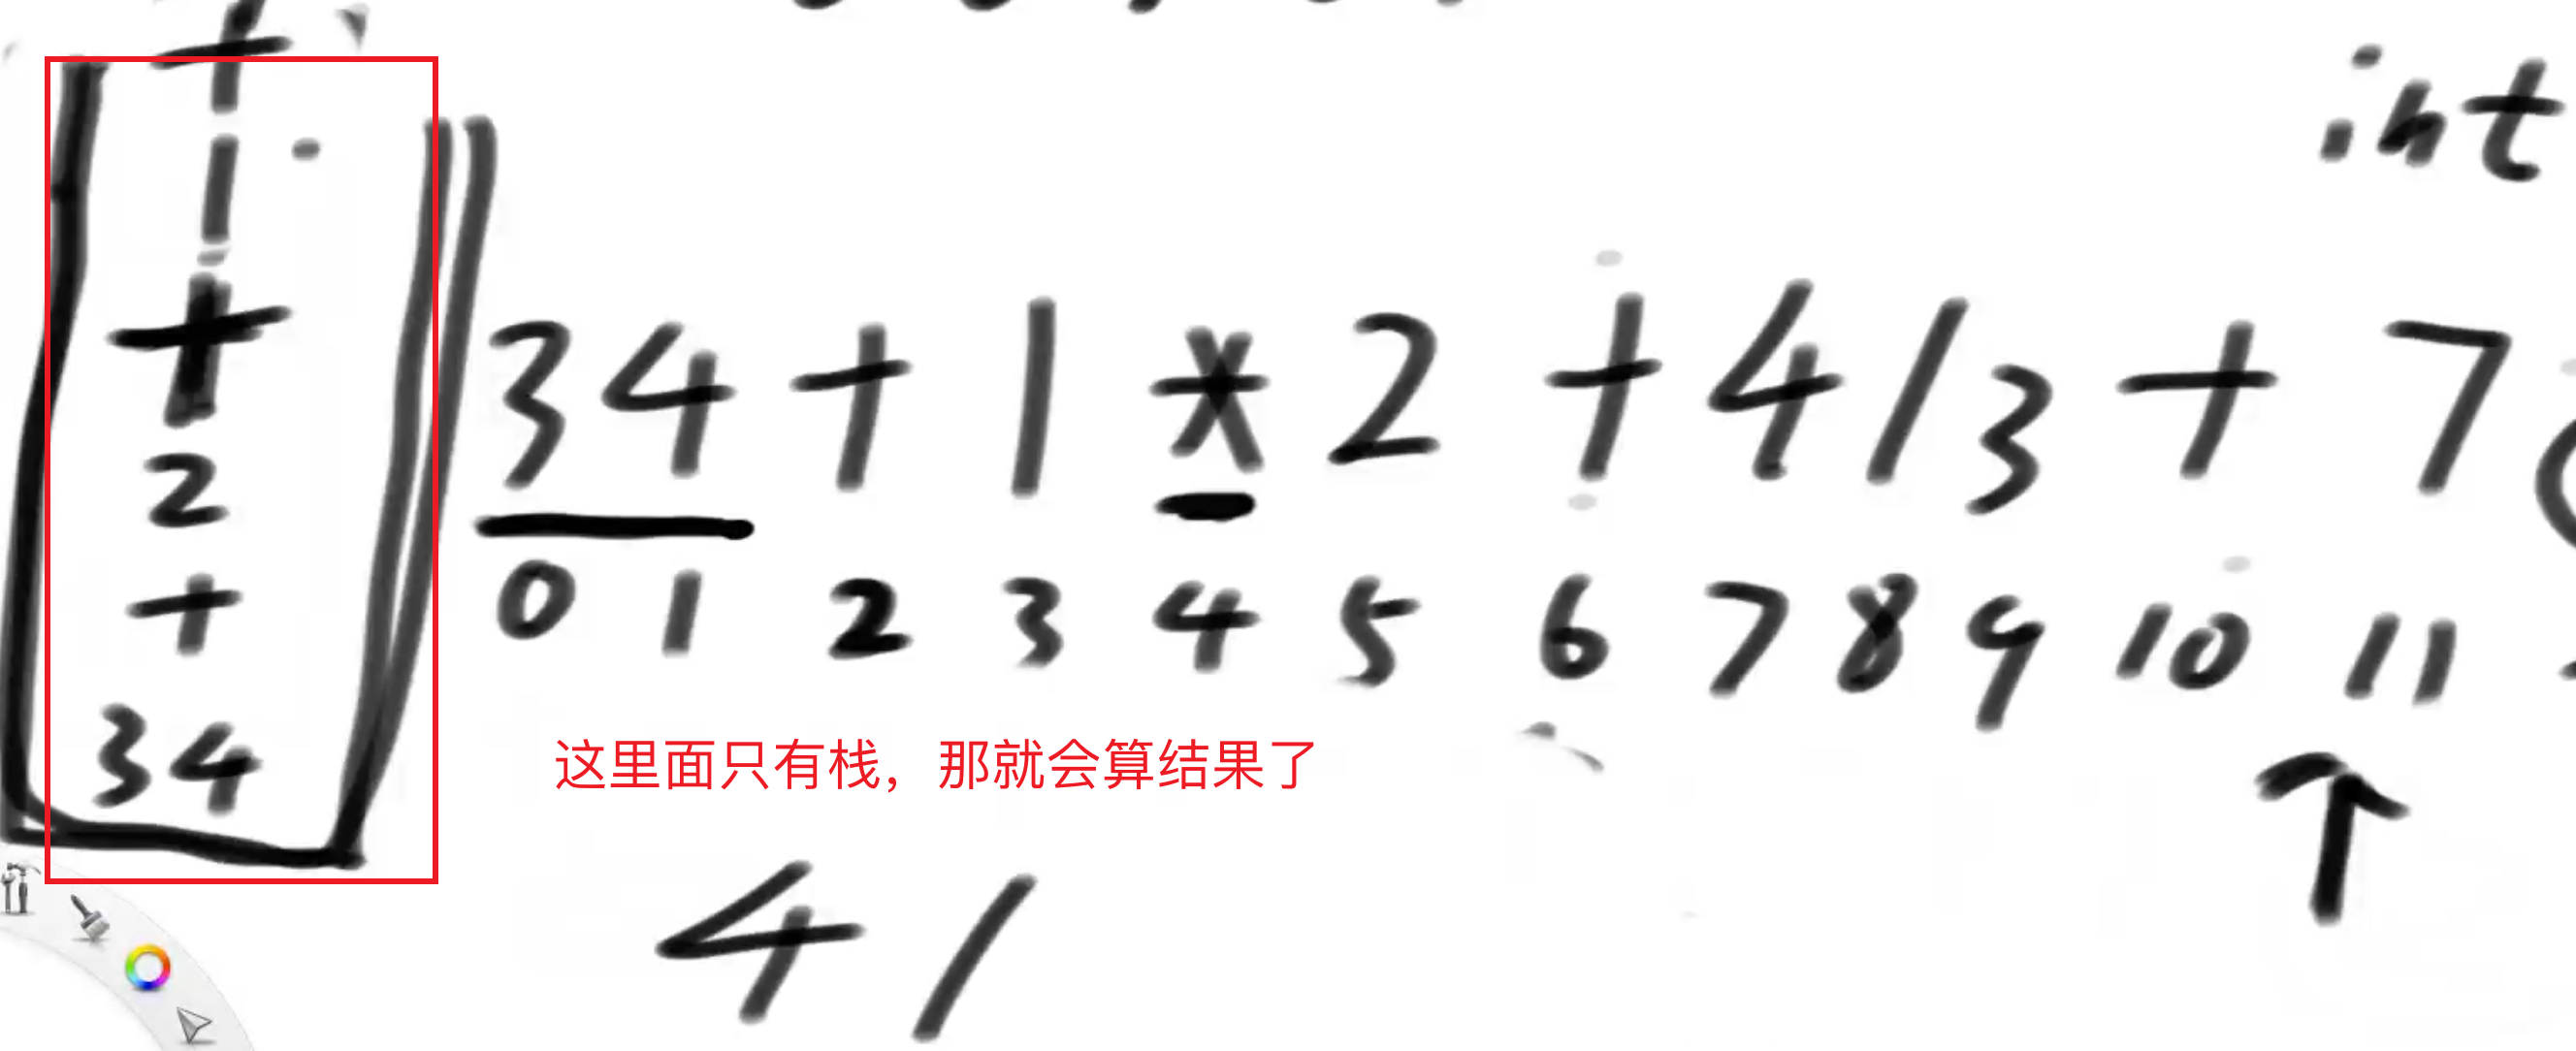 int
+
1
+
2
+
34
34+1*2+4/3+7
0 1 2 3 4 5 6 7 8 9 10 11
这里面只有栈，那就会算结果了
4/